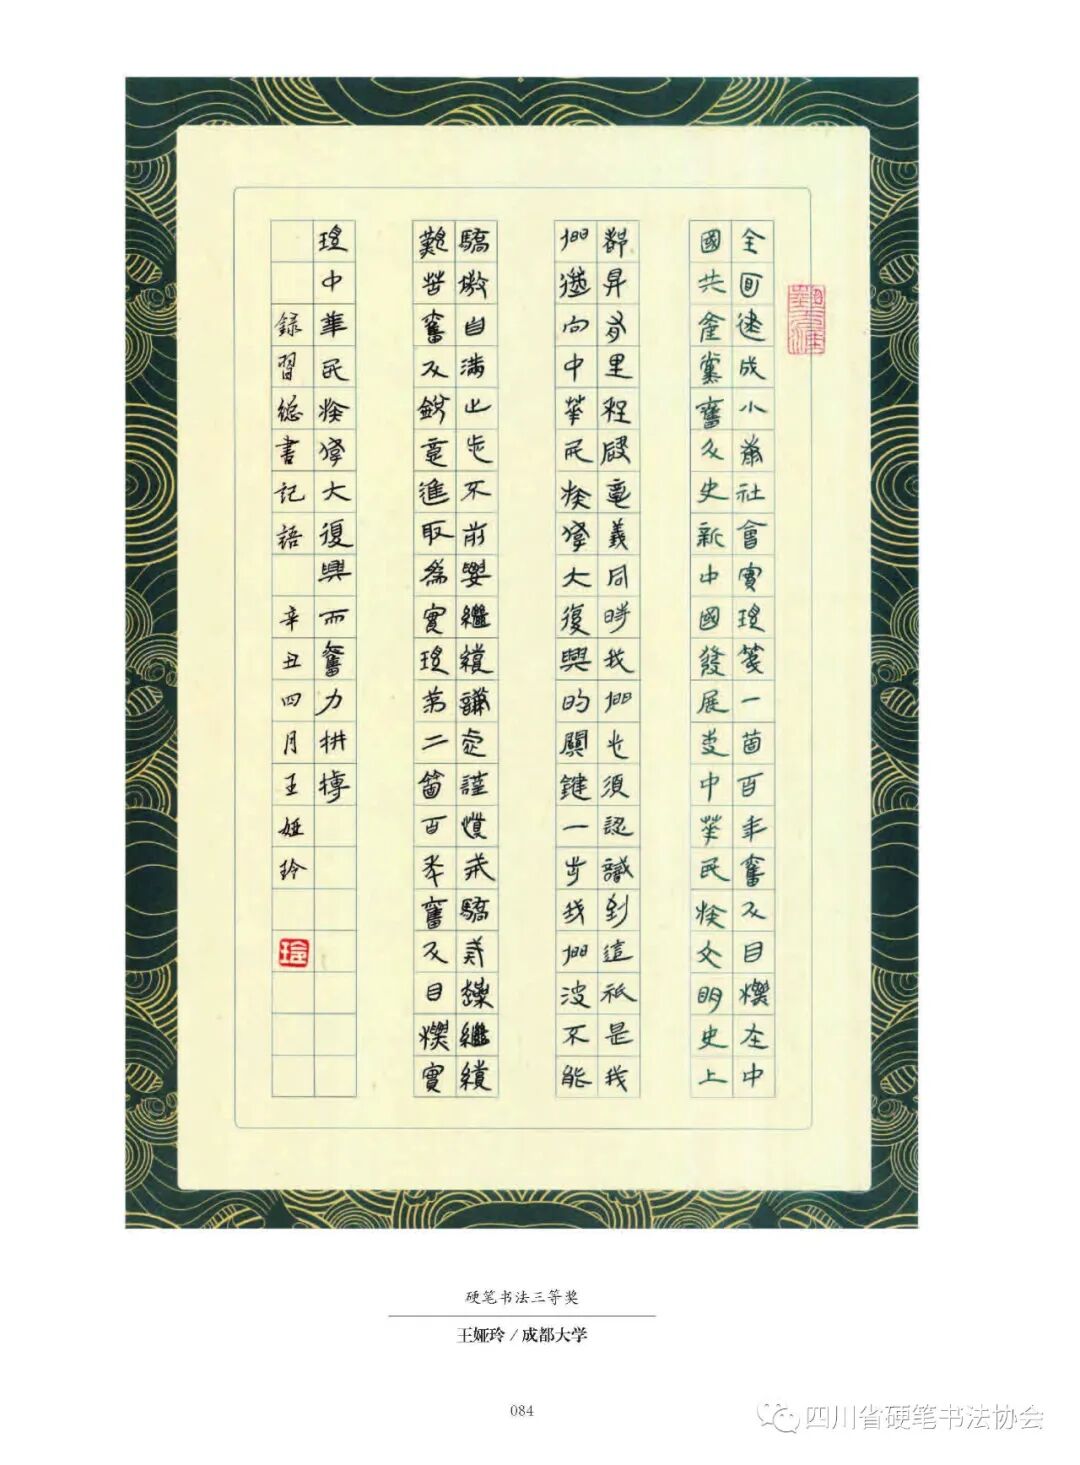 全面建成小康社會實現第一箇百年奮斗目標在中
國共產黨奮斗史新中國發展史中華民族文明史上
都具有里程碑意義同時我們也須認識到這祇是我
們邁向中華民族偉大復興的關鍵一步我們決不能
驕傲自滿止步不前要繼續謙虛謹慎戒驕戒躁繼續
艱苦奮斗銳意進取爲實現第二箇百年奮斗目標實
現中華民族偉大復興而奮力拼搏
録習總書記語 辛丑四月王婭玲
玲
硬笔书法三等奖
王娅玲 / 成都大学
084
四川省硬笔书法协会